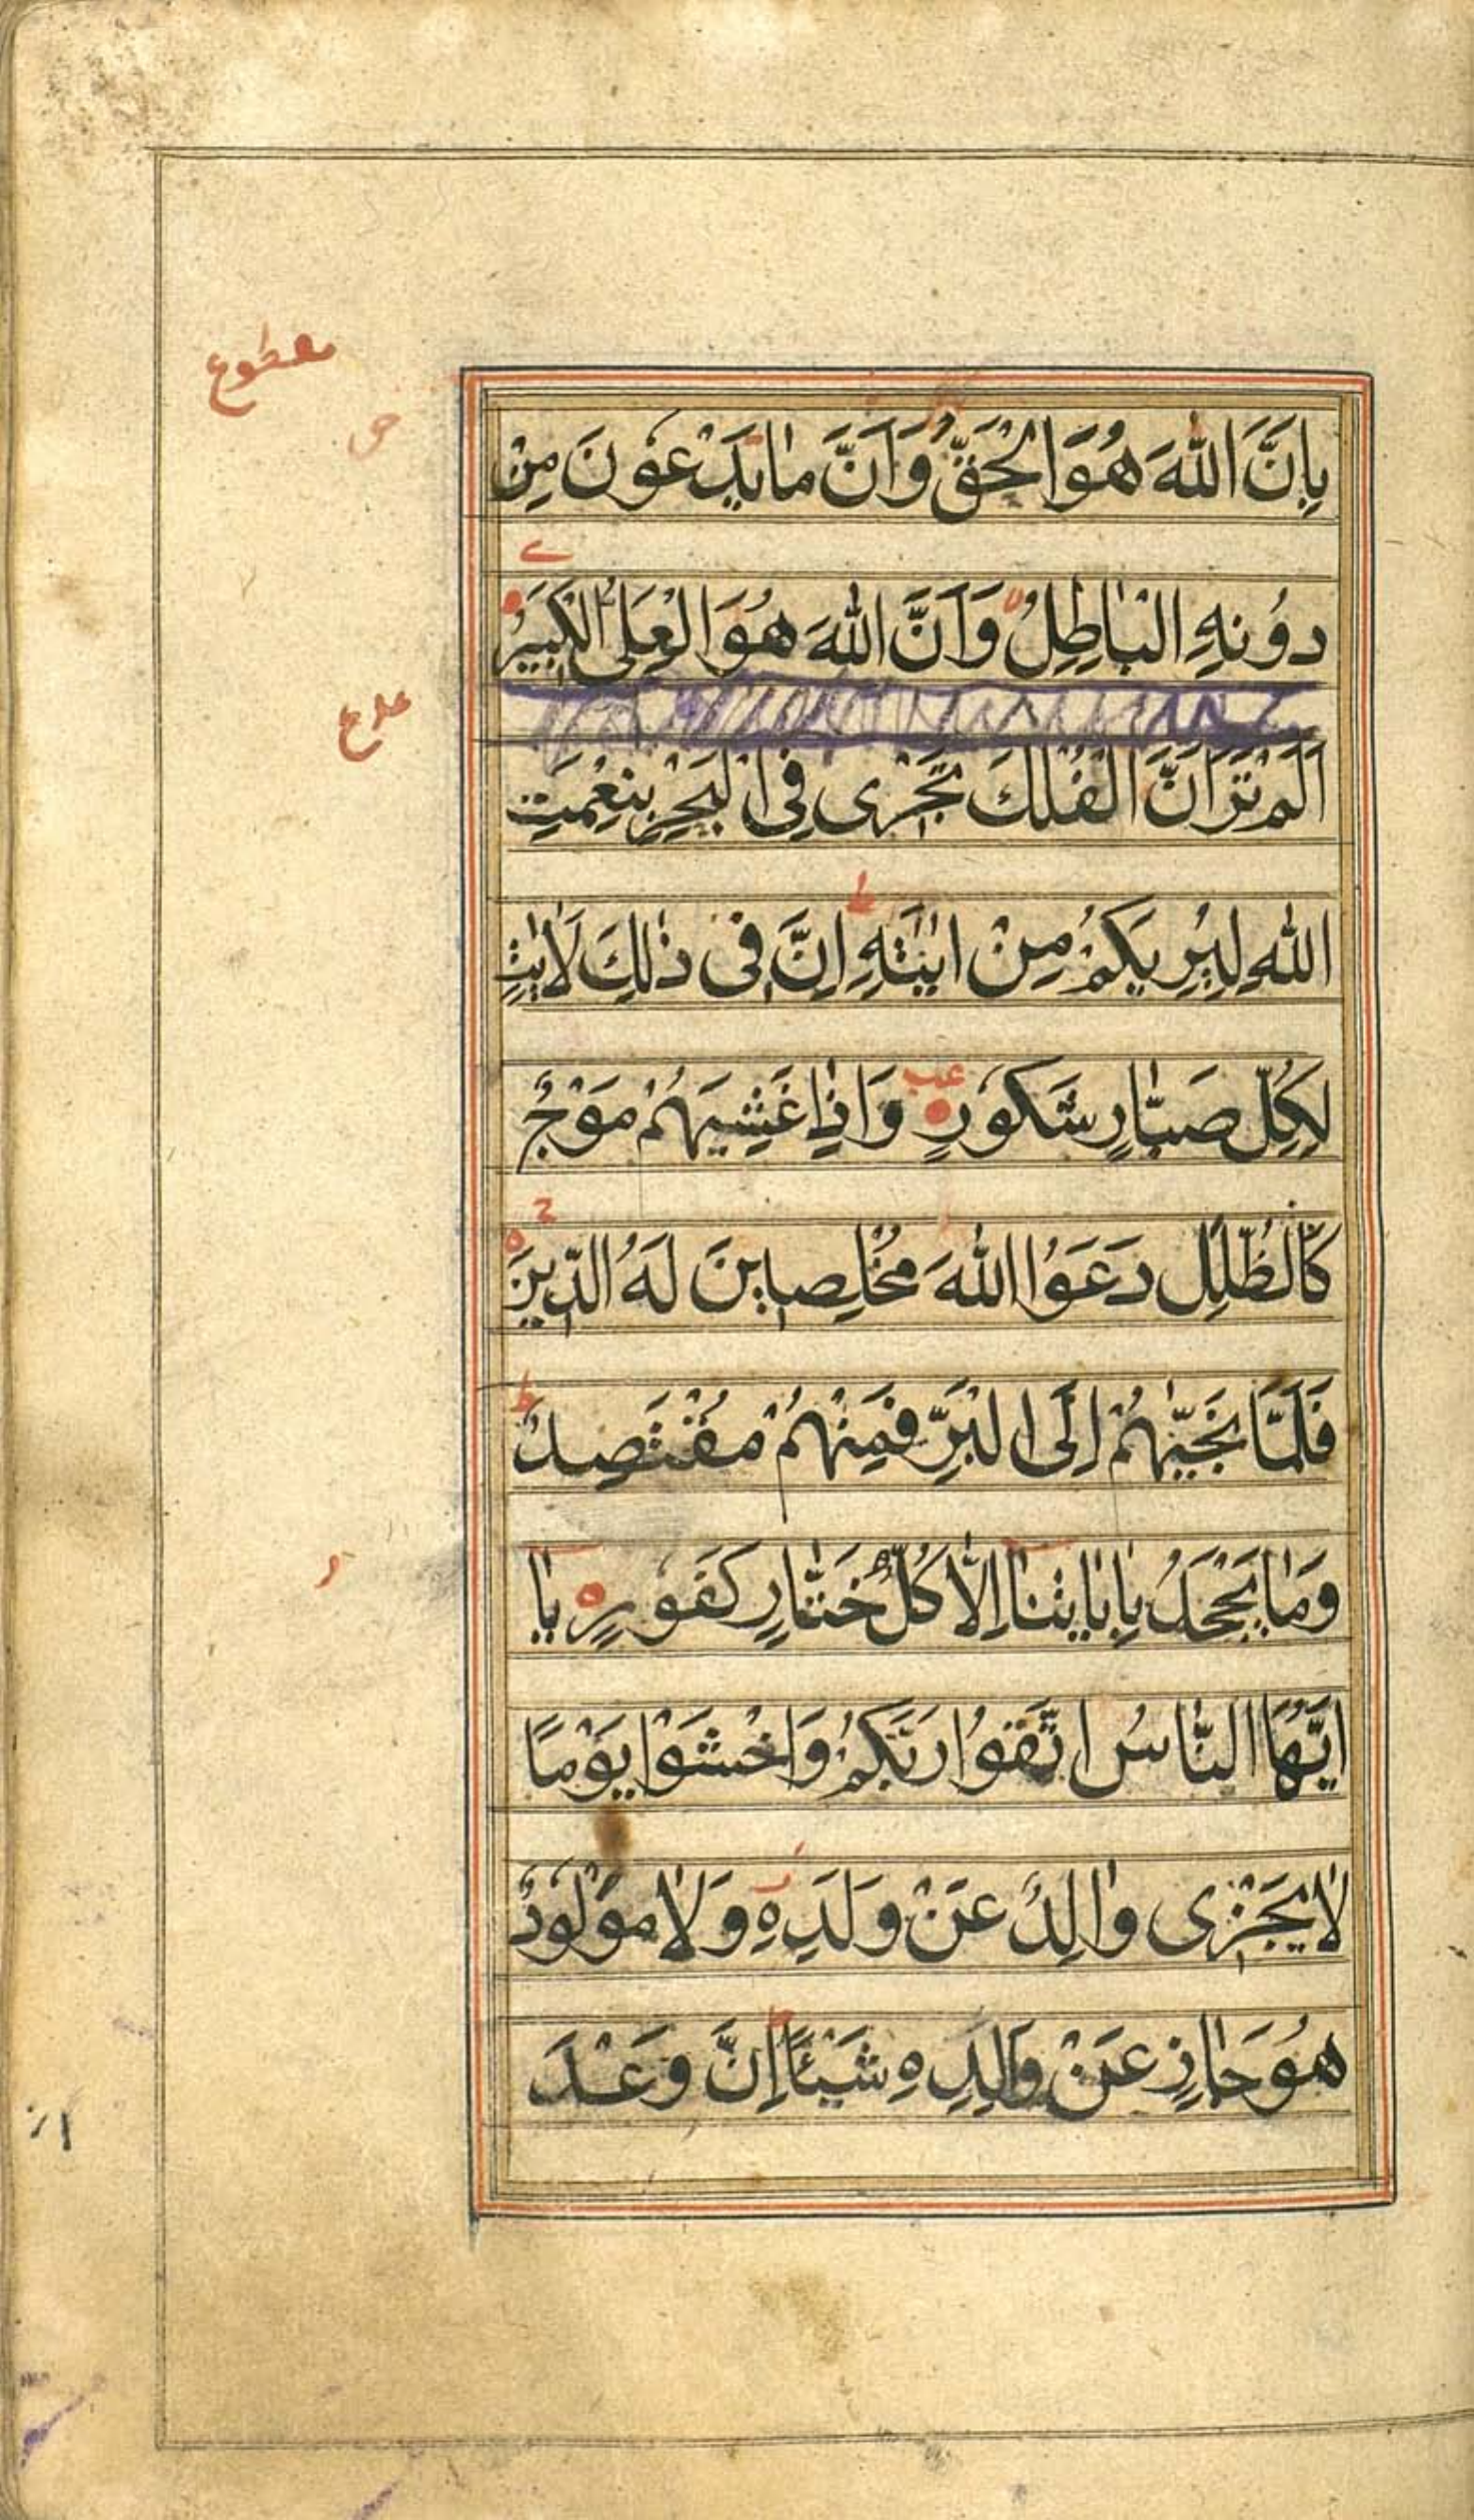 مقطوع
بِاَنَّ اللّٰهَ هُوَ الْحَقُّ وَاَنَّ مٰا يَدْعُوْنَ مِنْ
دُوْنِهِ الْبٰاطِلُ وَاَنَّ اللّٰهَ هُوَ الْعَلِىُّ الْكَبِيْرُ
اَلَمْ تَرَ اَنَّ الْفُلْكَ تَجْرٖى فِى الْبَحْرِ بِنِعْمَتِ
اللّٰهِ لِيُرِيَكُمْ مِنْ اٰيٰتِهٖ ط اِنَّ فٖى ذٰلِكَ لَاٰيٰتٍ
لِكُلِّ صَبّٰارٍ شَكُوْرٍ وَاِذٰا غَشِيَهُمْ مَوْجٌ
كَالظُّلَلِ دَعَوُا اللّٰهَ مُخْلِصٖيْنَ لَهُ الدّٖيْنَ
فَلَمّٰا نَجّٰيهُمْ اِلَى الْبَرِّ فَمِنْهُمْ مُقْتَصِدٌ ط
وَمٰا يَجْحَدُ بِاٰيٰاتِنٰا اِلّٰا كُلُّ خَتّٰارٍ كَفُوْرٍ يٰا
اَيُّهَا النّٰاسُ اتَّقُوْا رَبَّكُمْ وَاخْشَوْا يَوْمًا
لٰا يَجْزٖى وٰالِدٌ عَنْ وَلَدِهٖ وَلٰا مَوْلُوْدٌ
هُوَ جٰازٍ عَنْ وٰالِدِهٖ شَيْئًا اِنَّ وَعْدَ